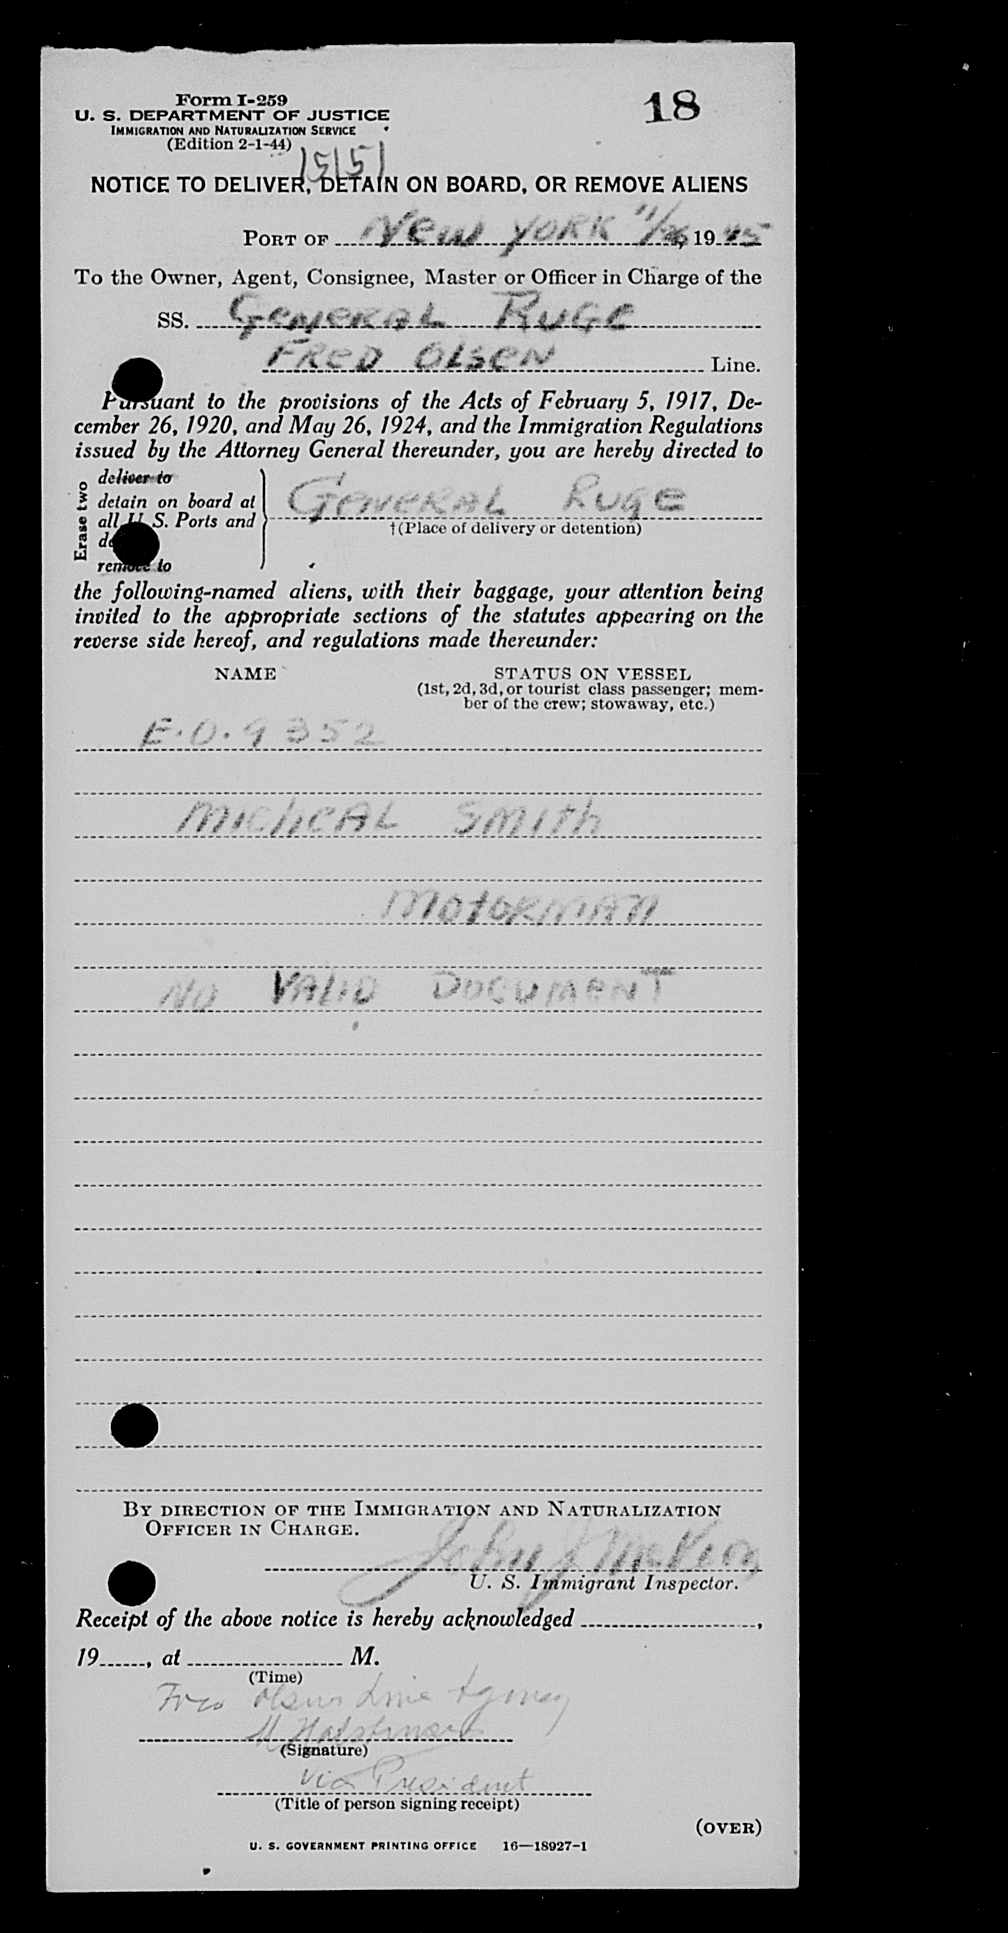 Form I-259
18
U. S. DEPARTMENT OF JUSTICE
IMMIGRATION AND NATURALIZATION SERVICE
(Edition 2-1-44)
15151
NOTICE TO DELIVER, DETAIN ON BOARD, OR REMOVE ALIENS
PORT OF NEW YORK 11/26, 1945
To the Owner, Agent, Consignee, Master or Officer in Charge of the
SS. GENERAL RUGE
FRED OLSEN Line.
Pursuant to the provisions of the Acts of February 5, 1917, De-
cember 26, 1920, and May 26, 1924, and the Immigration Regulations
issued by the Attorney General thereunder, you are hereby directed to
Erase two
deliver to
detain on board at
all U. S. Ports and
remove to
GENERAL RUGE
†(Place of delivery or detention)
the following-named aliens, with their baggage, your attention being
invited to the appropriate sections of the statutes appearing on the
reverse side hereof, and regulations made thereunder:
NAME
STATUS ON VESSEL
(1st, 2d, 3d, or tourist class passenger; mem-
ber of the crew; stowaway, etc.)
E.O. 9352
MICHEAL SMITH
MOTORMAN
NO VALID DOCUMENT
BY DIRECTION OF THE IMMIGRATION AND NATURALIZATION
OFFICER IN CHARGE.
John J
U. S. Immigrant Inspector.
Receipt of the above notice is hereby acknowledged ,
19 , at M.
(Time)
Fred Olsen Line Agency
(Signature)
Vice President
(Title of person signing receipt)
(OVER)
U. S. GOVERNMENT PRINTING OFFICE 16—18927-1